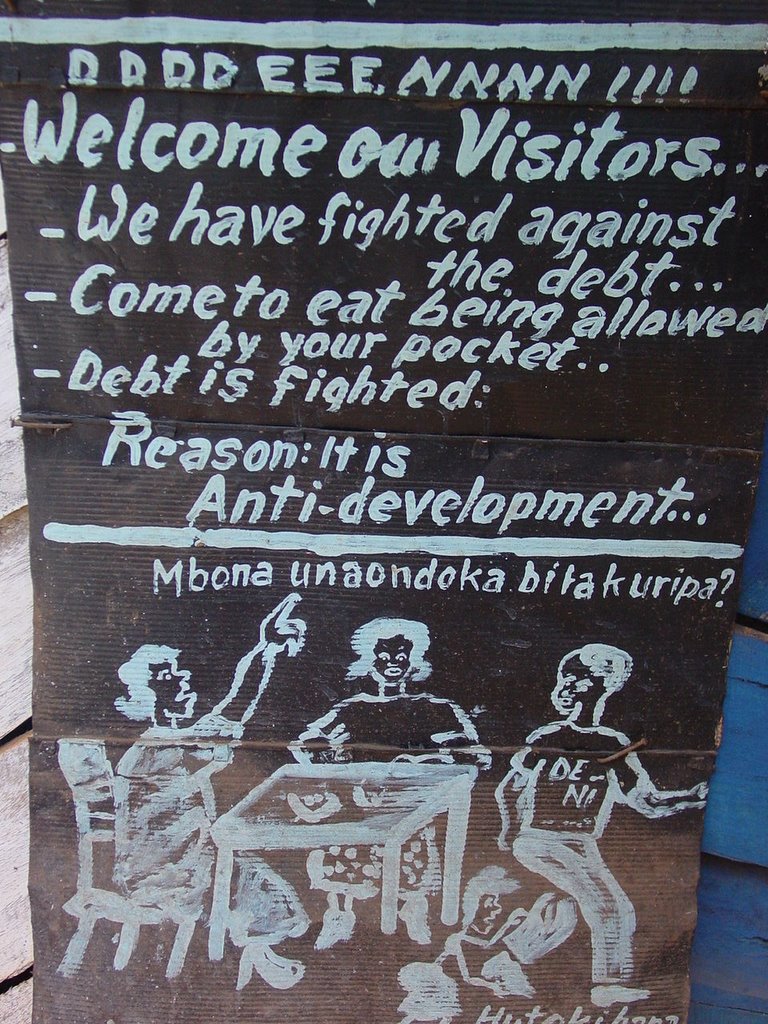 DDDDEEENNNN!!!!
-Welcome our Visitors...
-We have fighted against
the debt...
-Come to eat being allowed
by your pocket..
-Debt is fighted:
Reason: It is
Anti-development...
Mbona unaondoka bila kuripa?
DE-
NI